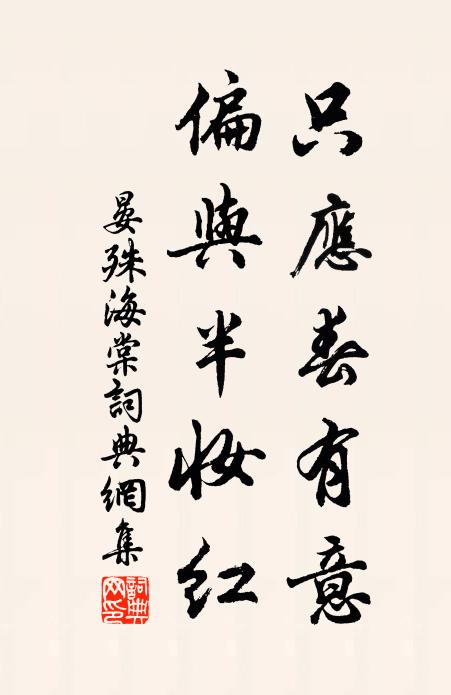 只應春有意
偏與半妝紅
晏殊海棠詞典網集
詞典網印